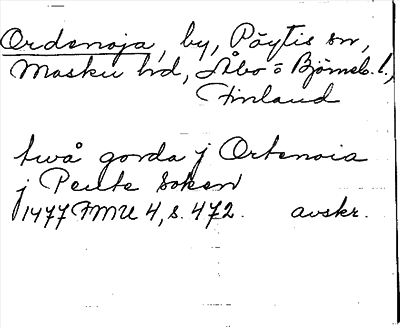 Ordenoja, by, Pöytis sn,
Masku hd, Åbo o Björneb. l.,
Finland
twå gorda j Ortenoia
j Peute soken
1477 FMU 4, s. 472. avskr.